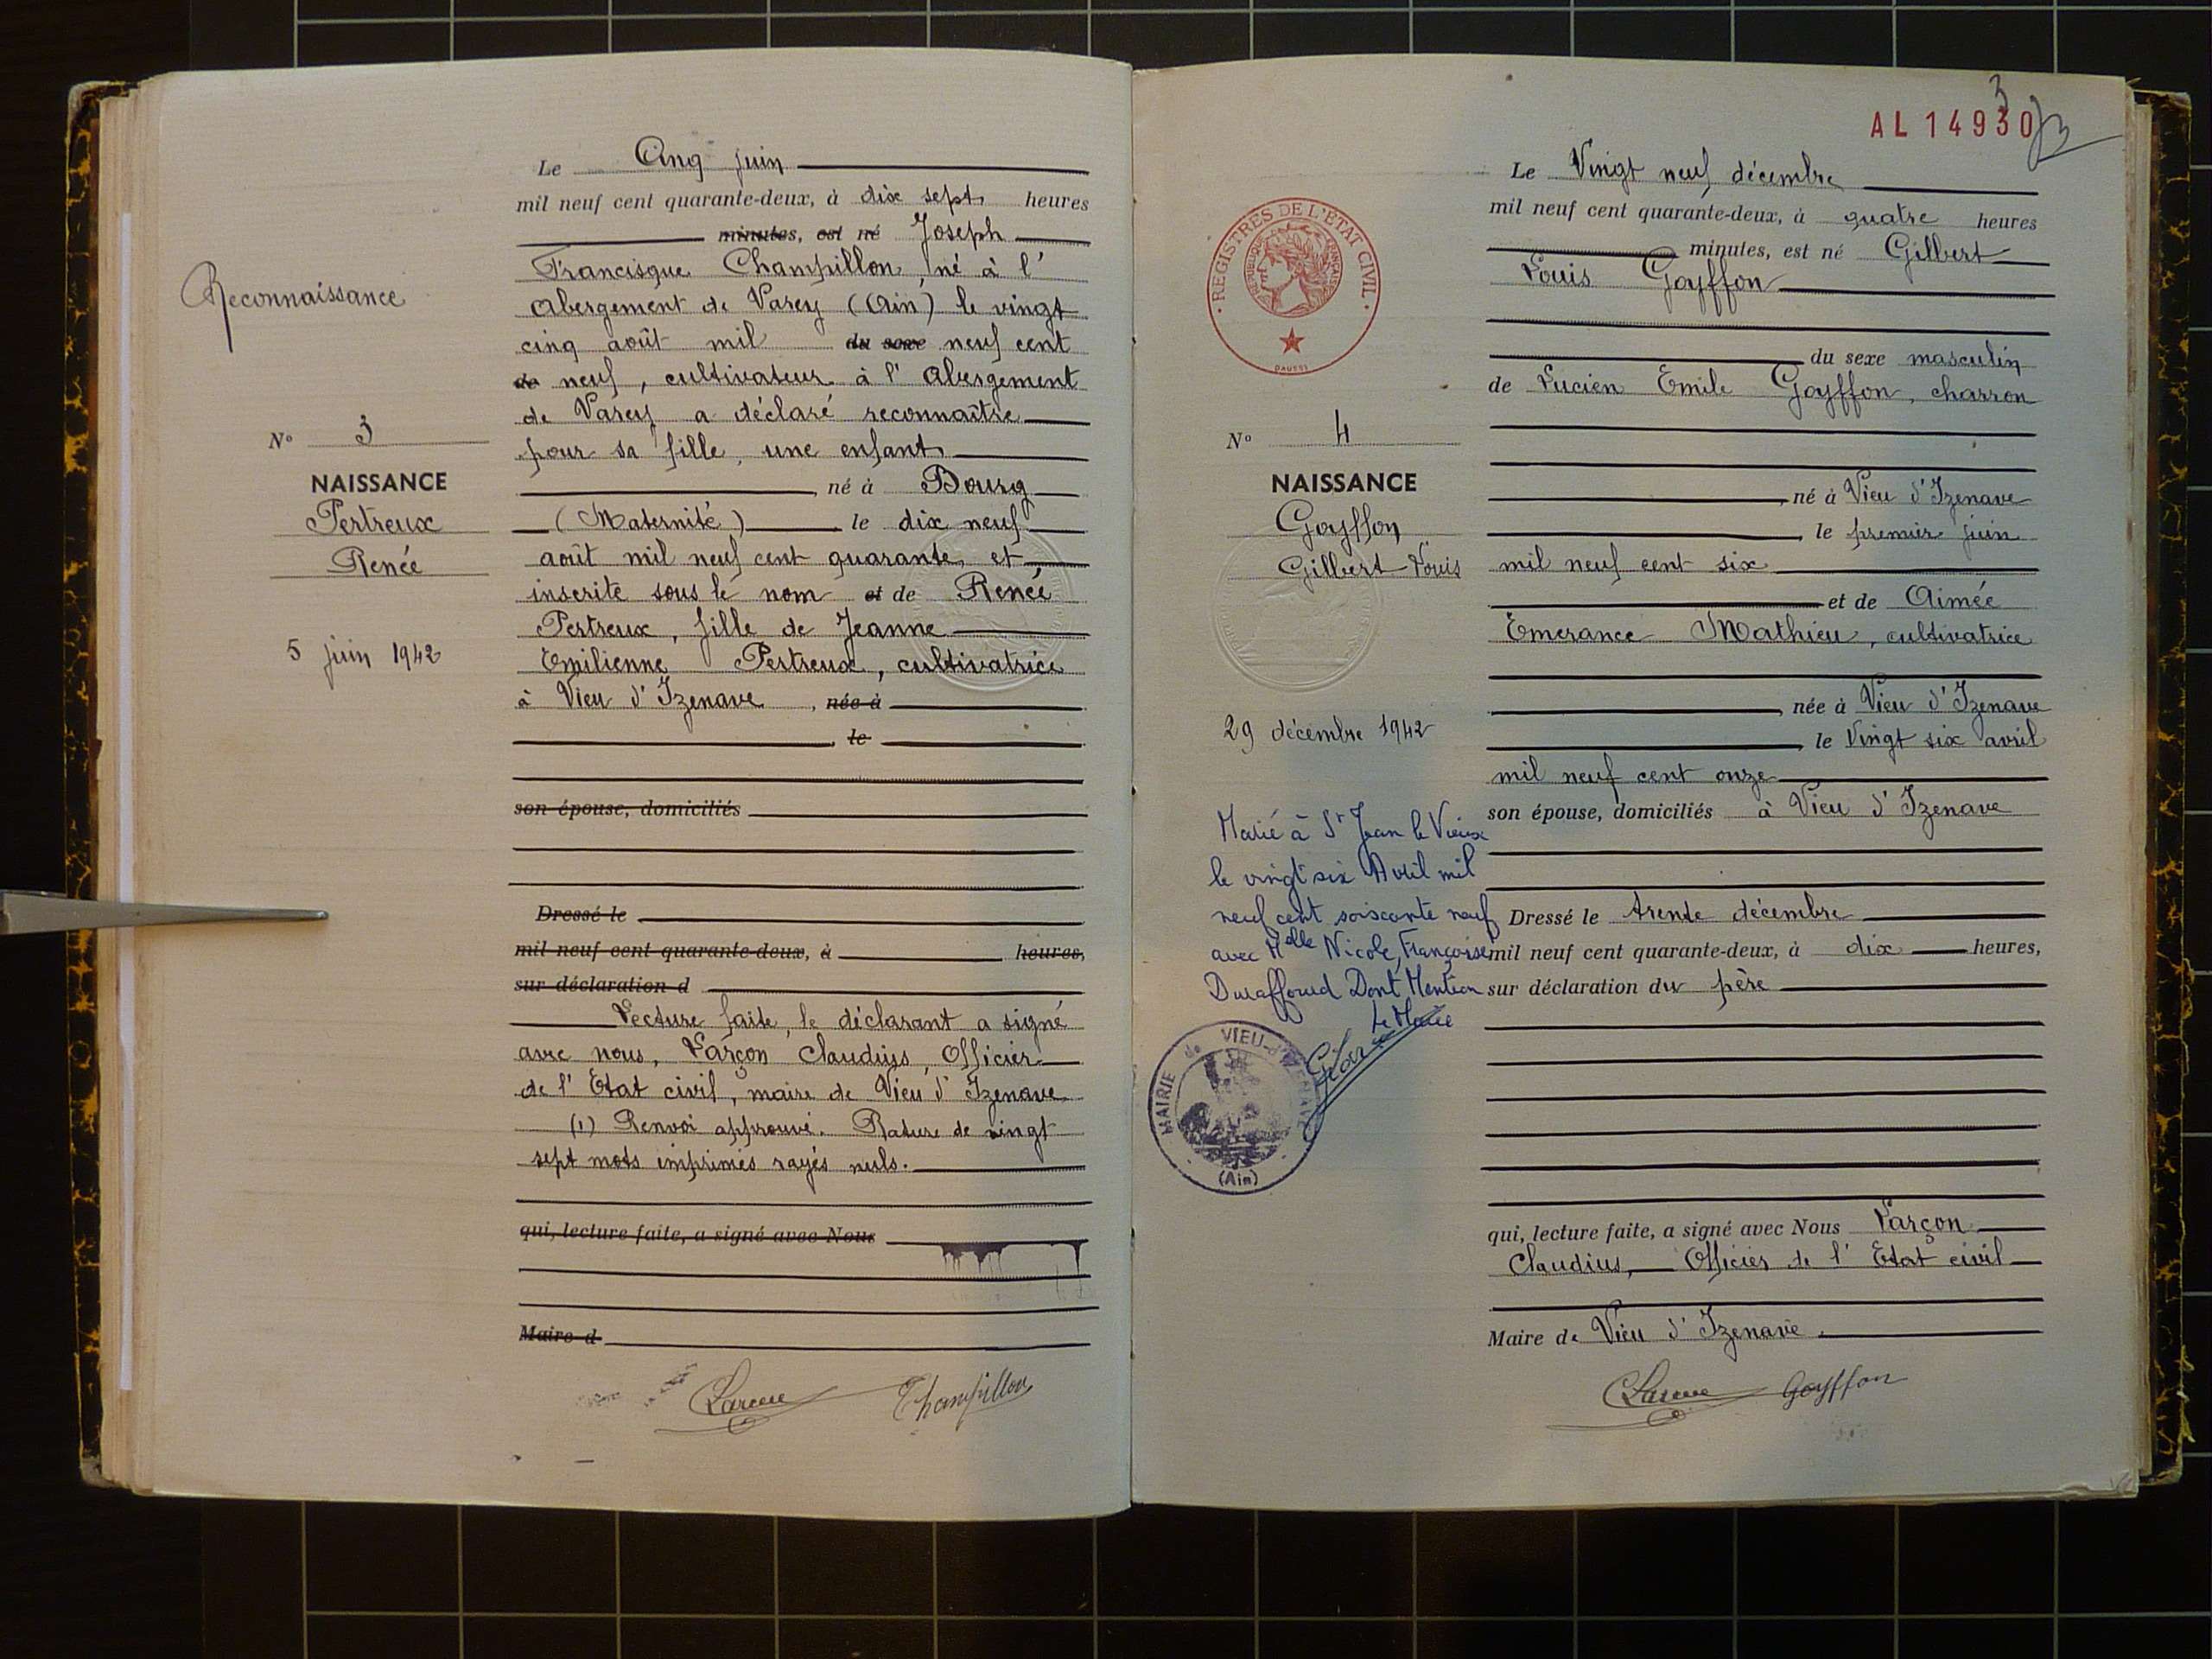 Reconnaissance
N° 3
NAISSANCE
Pertreux
Renée
5 juin 1942
Le Cinq juin
mil neuf cent quarante-deux, à dix sept heures
minutes, est né Joseph
Francisque Champillon, né à l'
Abergement de Varey (Ain) le vingt
cinq août mil du sexe neuf cent
de neuf, cultivateur à l'Abergement
de Varey a déclaré reconnaître
pour sa fille, une enfant
né à Bourg
(Maternité) le dix neuf
août mil neuf cent quarante et
inscrite sous le nom et de Renée
Pertreux, fille de Jeanne
Emilienne Pertreux, cultivatrice
à Vieu d'Izenave, née à
, le
son épouse, domiciliés
Dressé le
mil neuf cent quarante-deux, à heures,
sur déclaration d
Lecture faite, le déclarant a signé
avec nous, Larçon Claudius, Officier
de l'Etat civil, maire de Vieu d'Izenave
(1) Renvoi approuvé. Rature de vingt
sept mots imprimés rayés nuls.
qui, lecture faite, a signé avec Nous
Maire d
Champillon
AL 14930
3
REGISTRES DE L'ÉTAT CIVIL
DAUSSI
N° 4
NAISSANCE
Goyffon
Gilbert Louis
29 décembre 1942
Marié à St Jean le Vieux
le vingt six Avril mil
neuf cent soixante neuf
avec Melle Nicole, Françoise
Duraffourd Dont Mention
Le Maire
MAIRIE de VIEU-d'IZENAVE
(Ain)
Le Vingt neuf décembre
mil neuf cent quarante-deux, à quatre heures
minutes, est né Gilbert
Louis Goyffon
du sexe masculin
de Lucien Emile Goyffon, charron
, né à Vieu d'Izenave
, le premier juin
mil neuf cent six
et de Aimée
Emerance Mathieu, cultivatrice
, née à Vieu d'Izenave
, le Vingt six avril
mil neuf cent onze
son épouse, domiciliés à Vieu d'Izenave
Dressé le trente décembre
mil neuf cent quarante-deux, à dix heures,
sur déclaration du père
qui, lecture faite, a signé avec Nous Larçon
Claudius, Officier de l'Etat civil
Maire de Vieu d'Izenave.
Goyffon